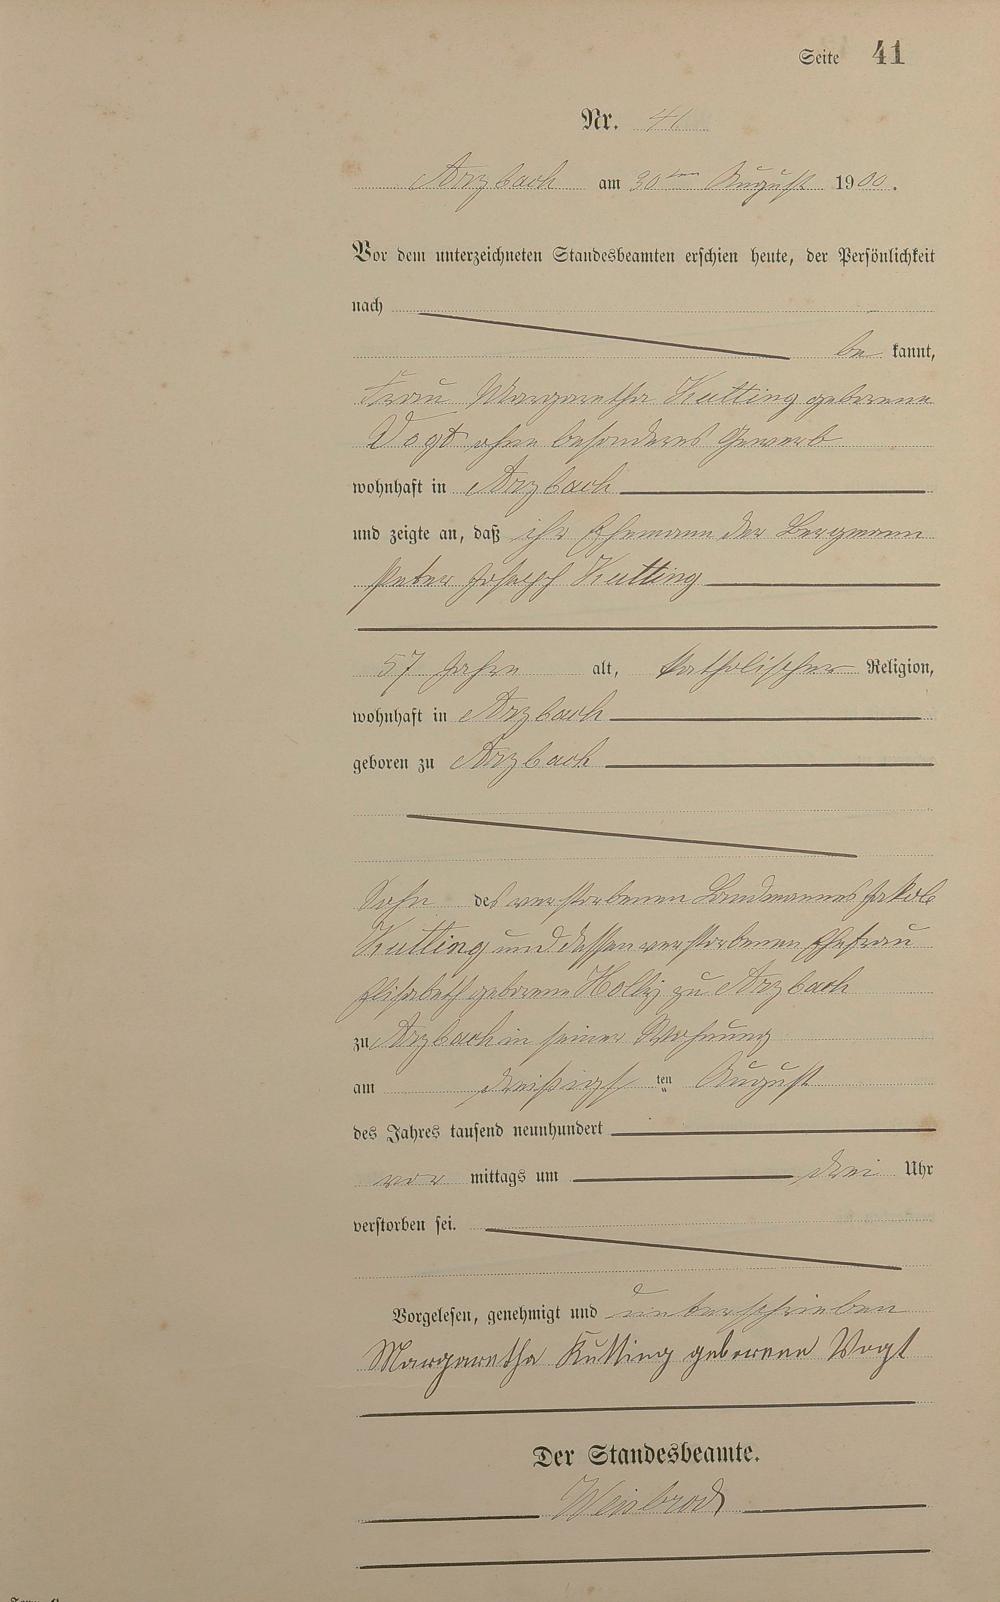 Seite 41
Nr. 41
Arzbach am 30ten August 1900.
Vor dem unterzeichneten Standesbeamten erschien heute, der Persönlichkeit
nach
be kannt,
Frau Margaretha Kutting geborene
Vogt ohne besonderes Gewerb
wohnhaft in Arzbach
und zeigte an, daß ihr Ehemann der Bergmann
Peter Joseph Kutting
57 Jahre alt, katholischer Religion,
wohnhaft in Arzbach
geboren zu Arzbach
Sohn des verstorbenen Landmannes Jakob
Kutting und dessen verstorbenen Ehefrau
Elisabeth geborene zu Arzbach
zu Arzbach in seiner Wohnung
am dreißigs ten August
des Jahres tausend neunhundert
vor mittags um drei Uhr
verstorben sei.
Vorgelesen, genehmigt und unterschrieben
Margaretha Kutting geborene Vogt
Der Standesbeamte.
Weisbrod